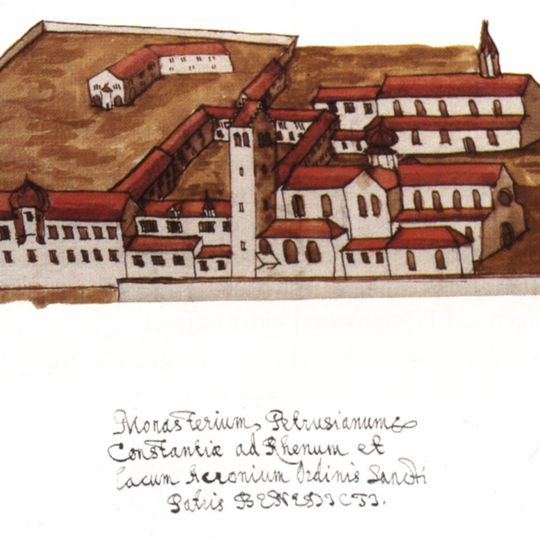 Monasterium Petrusianum
Constantiæ ad Rhenum et
Lacum Acronium Ordinis Sancti
Patris BENEDICTI.